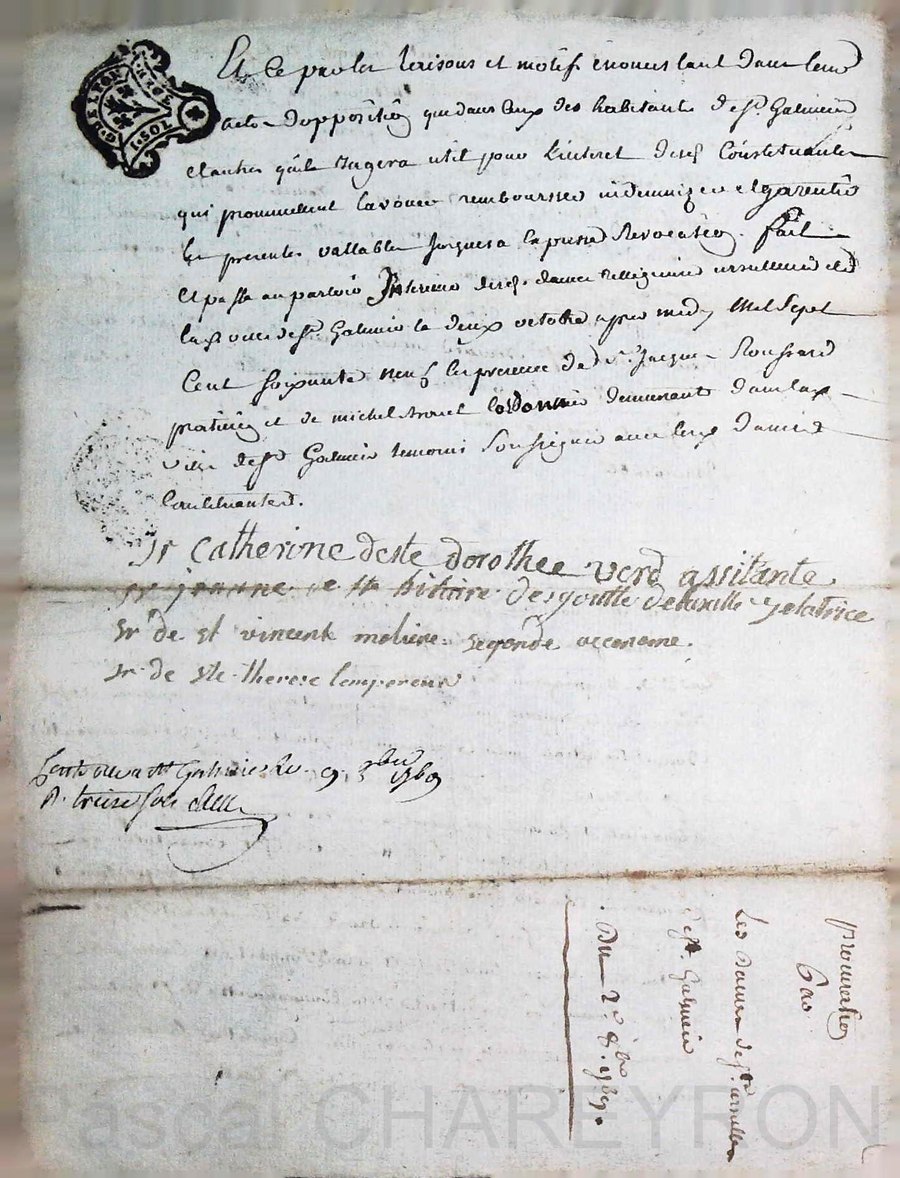 Et ce par les raisons et motifs énoncés tant dans leur
acte d'opposition que dans ceux des habitants de st. Galmier
et autres qu'il jugera util pour l'interet desd. Constituantes
qui promettent l'avouer rembourser indemnizer et garentir
les presentes vallables jusques a expresse Revocation. fait
et passé au parloir Interieur desd. dames Religieuses ursulines de
la ville de st. Galmier le deux octobre apres midy Mil Sept
Cent soixante neuf en presence de sr. Jacques Roussard
praticien et de michel cordonnier demeurants dans lad.
ville de st Galmier temoins soussignés avec lesd. dames
Constituantes.
sr catherine de ste dorothee verd assitante
sr jeanne de st hilaire desgoutte delasalle zelatrice
sr de st vincent moliere segonde occonome.
sr de ste therese l'empereur
Controllé a st Galmier le 9. 8bre 1769
R. treize sols
procuration
par
Les dames de ste. ursulle
de st. Galmier
Du 2e. 8bre 1769.
G. DE LYON
1. SOL
Pascal CHAREYRON